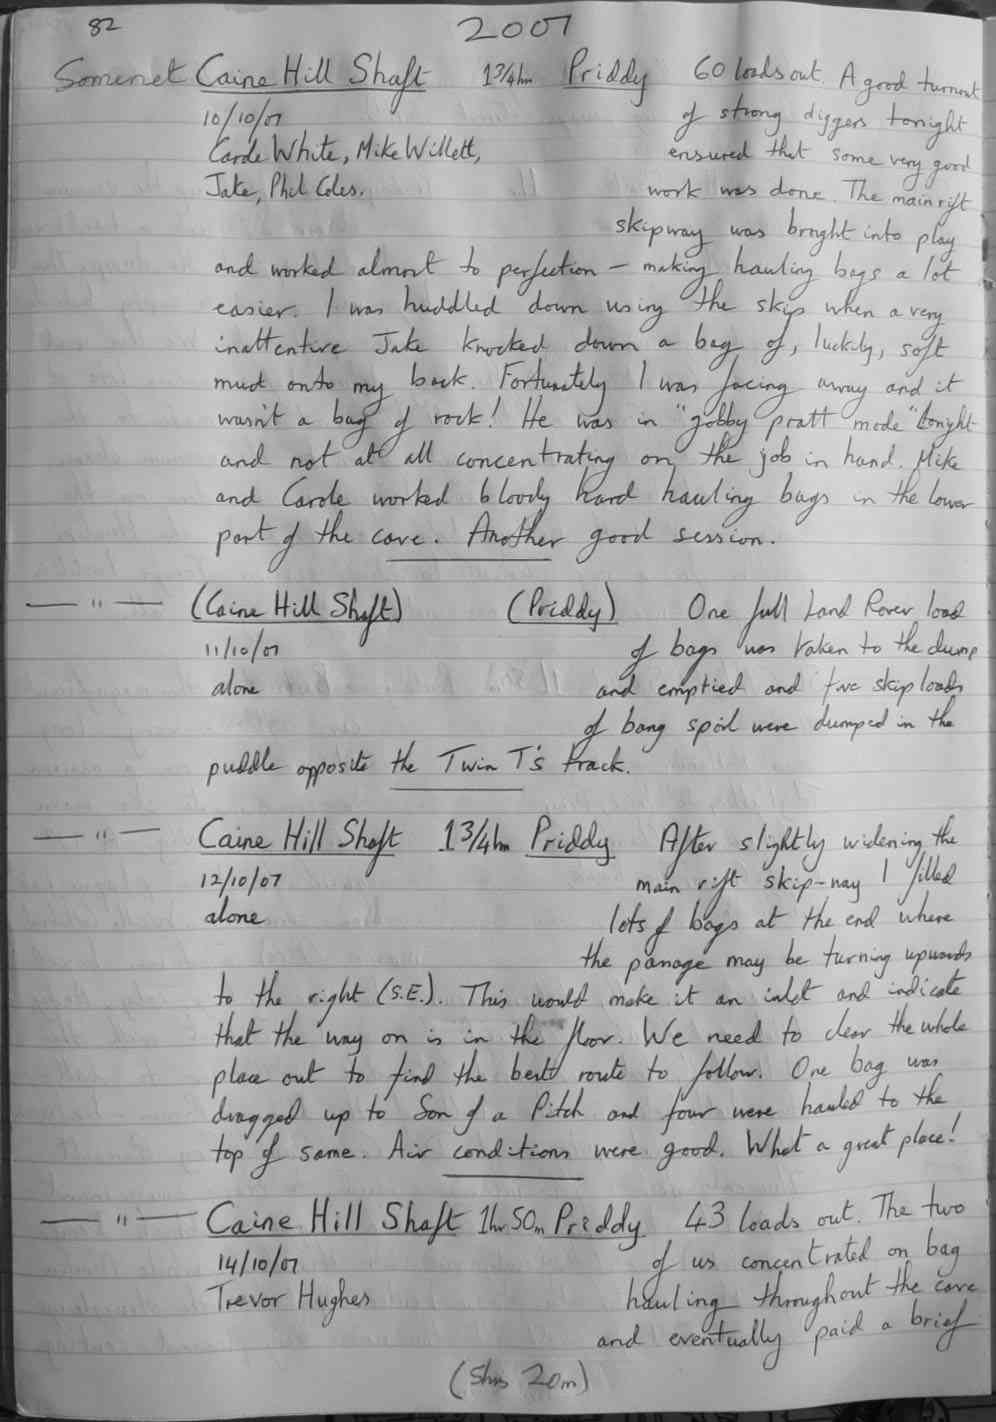 82
2007
Somerset Caine Hill Shaft 1¾hr Priddy 60 loads out. A good turnout
10/10/07 of strong diggers tonight
Carole White, Mike Willett, ensured that some very good
Jake, Phil Coles. work was done. The main rift
skipway was brought into play
and worked almost to perfection – making hauling bags a lot
easier. I was huddled down using the skip when a very
inattentive Jake knocked down a bag of, luckily, soft
mud onto my back. Fortunately I was facing away and it
wasn't a bag of rock! He was in "gobby pratt mode" tonight
and not at all concentrating on the job in hand. Mike
and Carole worked bloody hard hauling bags in the lower
part of the cave. Another good session.
— " — (Caine Hill Shaft) (Priddy) One full Land Rover load
11/10/07 of bags was taken to the dump
alone and emptied and five skip loads
of bang spoil were dumped in the
puddle opposite the Twin T's track.
— " — Caine Hill Shaft 1¾hr Priddy After slightly widening the
12/10/07 main rift skip-way I filled
alone lots of bags at the end where
the passage may be turning upwards
to the right (S.E.). This would make it an inlet and indicate
that the way on is in the floor. We need to clear the whole
place out to find the best route to follow. One bag was
dragged up to Son of a Pitch and four were hauled to the
top of same. Air conditions were good. What a great place!
— " — Caine Hill Shaft 1hr 50m Priddy 43 loads out. The two
14/10/07 of us concentrated on bag
Trevor Hughes hauling throughout the cave
and eventually paid a brief
(5hrs 20m)